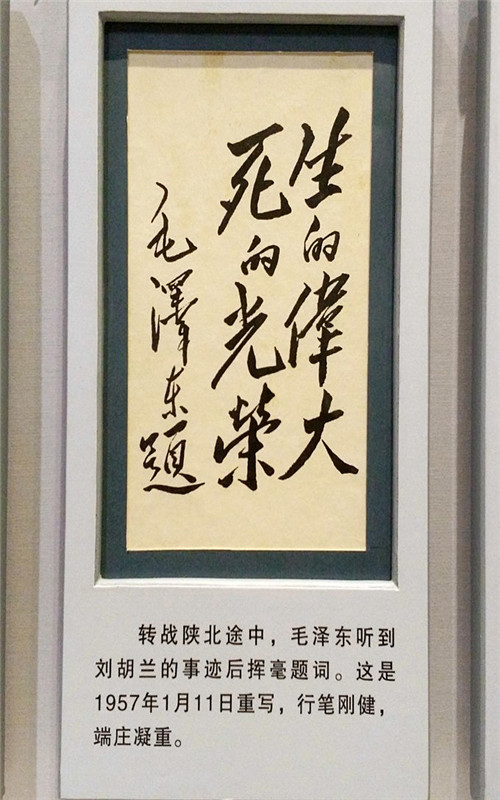 生的偉大
死的光榮
毛澤东題
转战陕北途中，毛泽东听到
刘胡兰的事迹后挥毫题词。这是
1957年1月11日重写，行笔刚健，
端庄凝重。